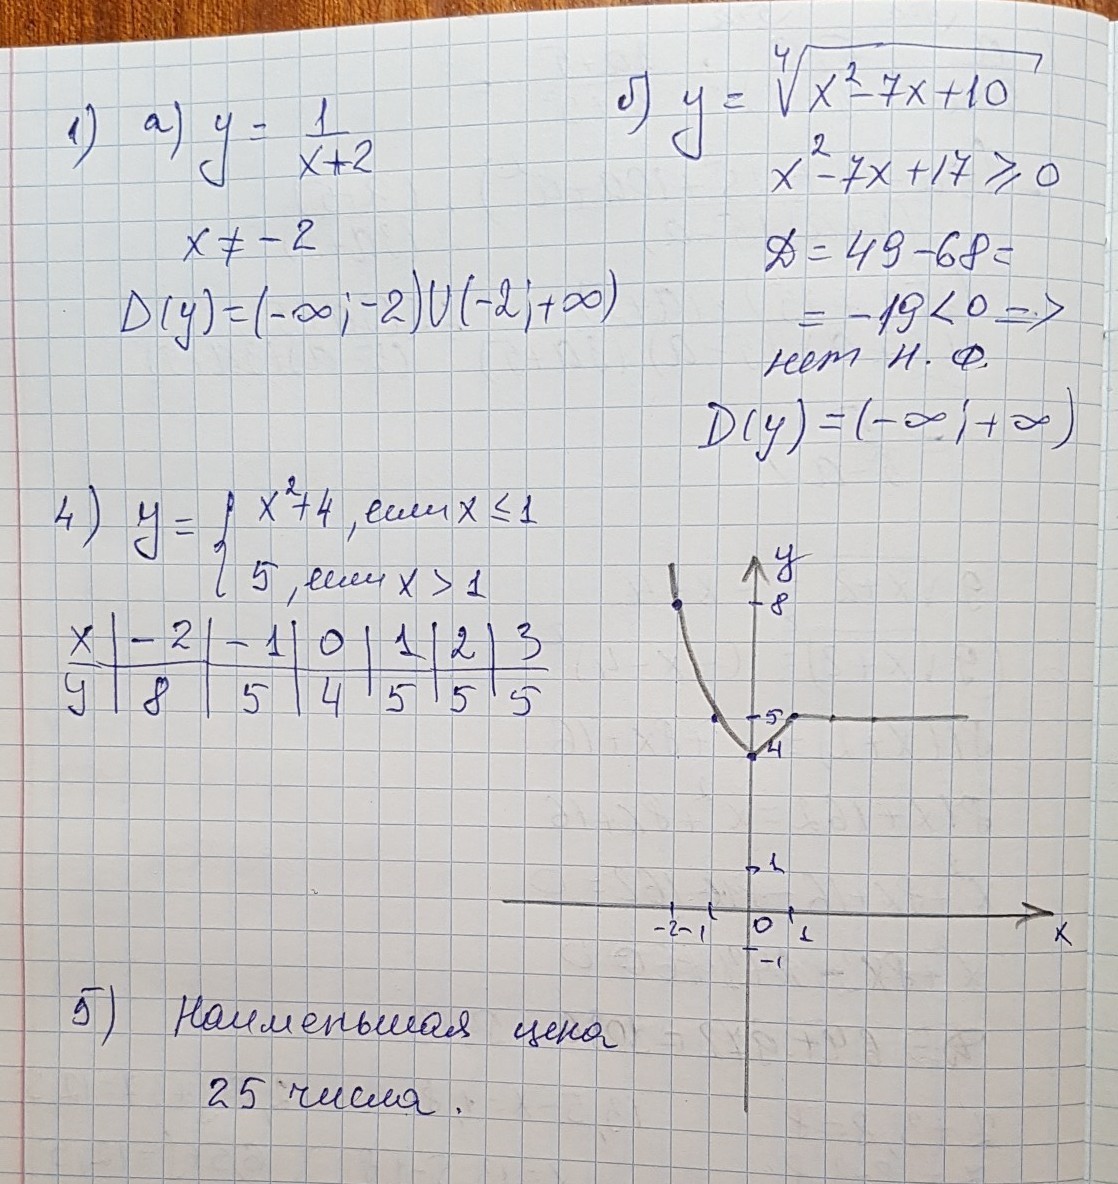 1) а) y = 1/(x+2)
x ≠ -2
D(y)=(-∞;-2)∪(-2;+∞)
б) y = ⁴√(x²-7x+10)
x²-7x+17 ≥ 0
D = 49-68=
= -19<0 =>
нет н. ф.
D(y)=(-∞;+∞)
4) y = { x²+4, если x ≤ 1
5, если x > 1
x | -2 | -1 | 0 | 1 | 2 | 3
y | 8 | 5 | 4 | 5 | 5 | 5
y
8
5
4
1
-2 -1 0 1 x
-1
5) Наименьшая цена
25 числа.